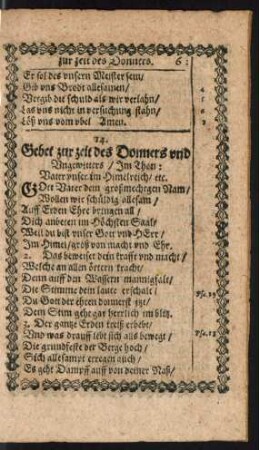 zur zeit des Donners. 6:
Er sol des unsern Meister sein/
Gib uns Brodt allesamen/
Vergib die schuld als wir verlahn/
Las uns nicht in versuchung stahn/
Löß uns vom ubel Amen.
24.
Gebet zur zeit des Donners und
Ungewitters / Im Thon:
Vater unser im Himelreich/ etc.
Der Vater dem großmechtgen Nam/
Wollen wir schüldig allesam/
Auff Erden Ehre bringen all/
Dich anbeten im Höchsten Saal/
Weil du bist unser Gott und HErr/
Im Himel/ groß von macht und Ehr.
2. Das beweiset dein krafft und macht/
Welche an allen örtern kracht/
Denn auff den Wassern mannigfalt/
Die Stimme dein laute erschalt:
Du Gott der ehren donnerst itzt/
Dein Stim geht gar herrlich im blitz.
3. Der gantze Erden kreiß erbebt/
Und was drauff lebt sich als bewegt/
Die grundfeste der Berge hoch/
Sich allesampt erregen auch/
Es geht Dampff auff von deiner Naß/
Psa. 29
Psa. 18